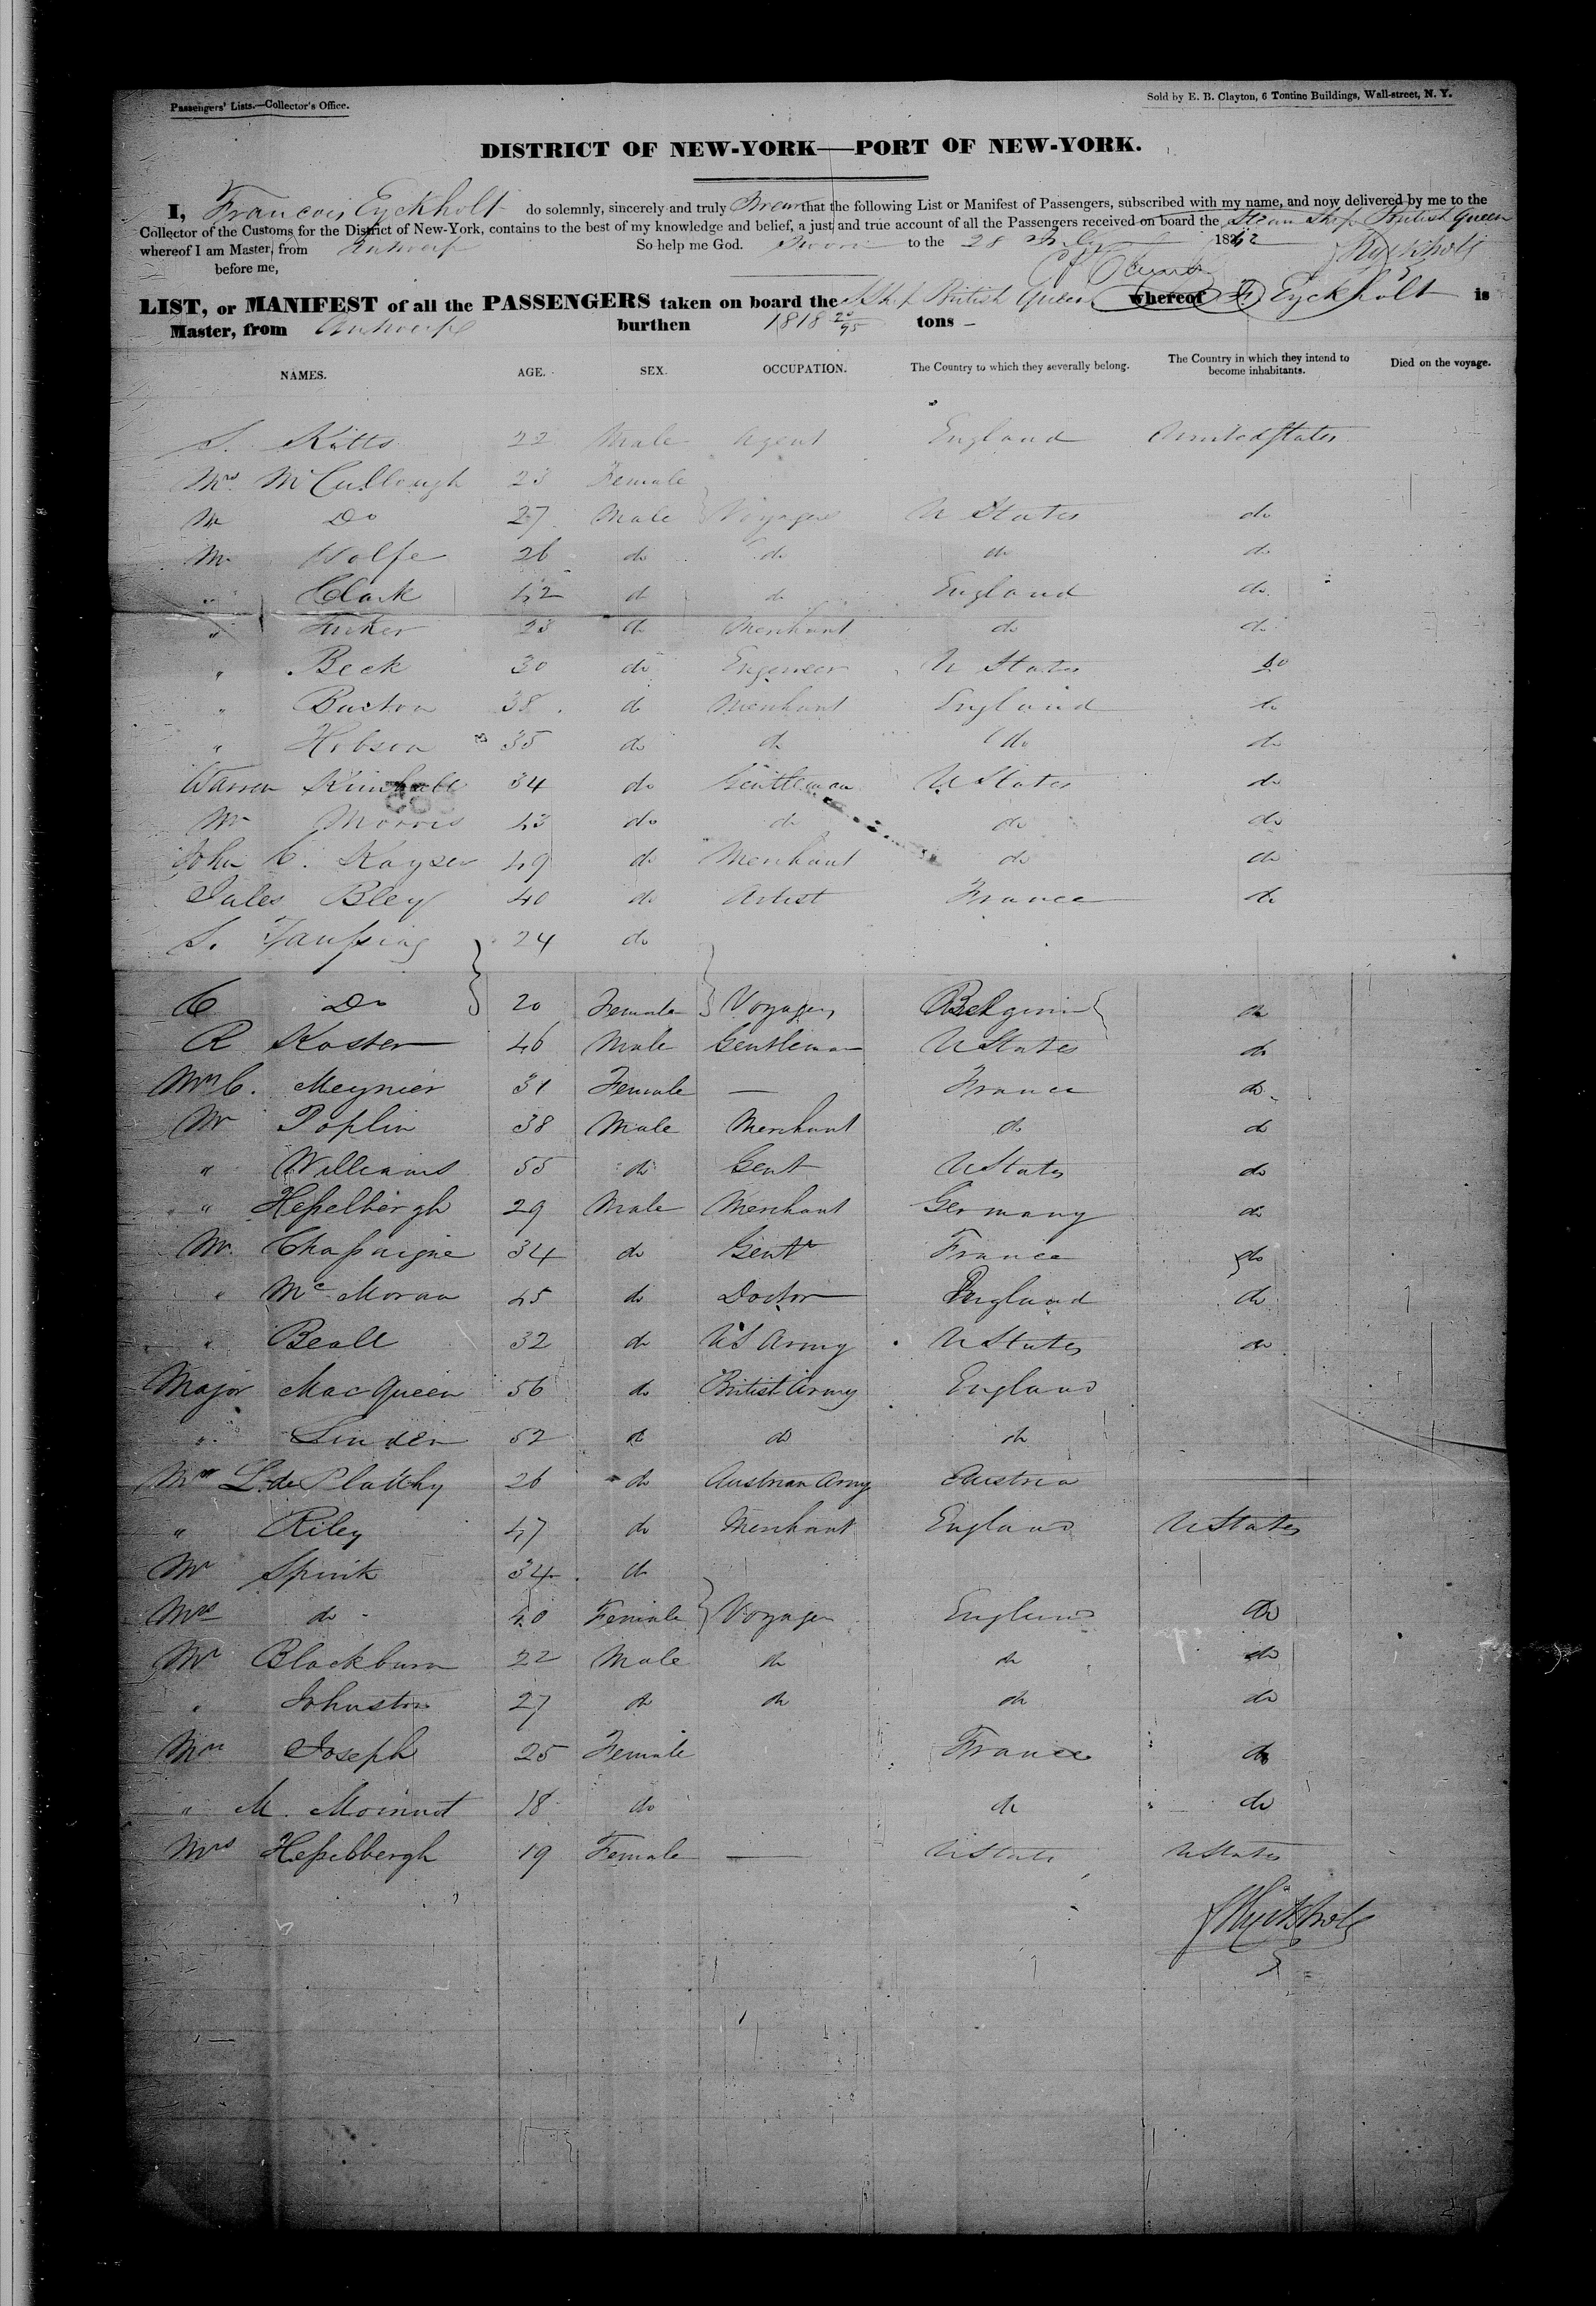 Passengers' Lists.—Collector's Office.
Sold by E. B. Clayton, 6 Tontine Buildings, Wall-street, N. Y.
DISTRICT OF NEW-YORK—PORT OF NEW-YORK.
I, Francois Eyckholt do solemnly, sincerely and truly Swear that the following List or Manifest of Passengers, subscribed with my name, and now delivered by me to the
Collector of the Customs for the District of New-York, contains to the best of my knowledge and belief, a just and true account of all the Passengers received on board the Steam Ship British Queen
whereof I am Master, from Antwerp So help me God. Sworn to the 28 July 1842 Eyckholt
before me,
LIST, or MANIFEST of all the PASSENGERS taken on board the S Ship British Queen whereof F Eyckholt is
Master, from Antwerp burthen 1818 20/95 tons
NAMES. AGE. SEX. OCCUPATION. The Country to which they severally belong. The Country in which they intend to become inhabitants. Died on the voyage.
S. Kitts 22 Male Agent England United States
Mrs McCullough 23 Female
Mr Do 27 Male Voyagers U States do
Mr Wolfe 26 do do do do
" Clark 42 do do England do
" Tucker 23 do Merchant do do
" Beck 30 do Engeneer U States do
" Burton 38 do Merchant England do
" Hobson 35 do do do do
Warren Kimball 34 do Gentleman U States do
Mr Morris 43 do do do do
John C. Kayser 49 do Merchant do do
Jules Bley 40 do Artist France do
S. Taussing 24 do
C Do 20 Female Voyagers Belgium do
R Koster 46 Male Gentleman U States do
Mrs C. Meynier 31 Female — France do
Mr Poplin 38 Male Merchant do do
" Williams 55 do Gent U States do
" Hesselbergh 29 Male Merchant Germany do
Mr Chassaigne 34 do Gent France do
" Mc Moran 45 do Doctor England do
" Beall 32 do US Army U States do
Major Mac Queen 56 do British Army England
" Linden 52 do do do
Mr L. de Platthy 26 do Austrian Army Austria
" Riley 47 do Merchant England U States
Mr Spink 34 do
Mrs do 40 Female Voyager England Do
Mr Blackburn 22 Male do do do
" Johnston 27 do do do do
Mrs Joseph 25 Female France do
" M. Moinnot 18 do do do
Mrs Hesselbergh 19 Female — U State U States
Eyckholt